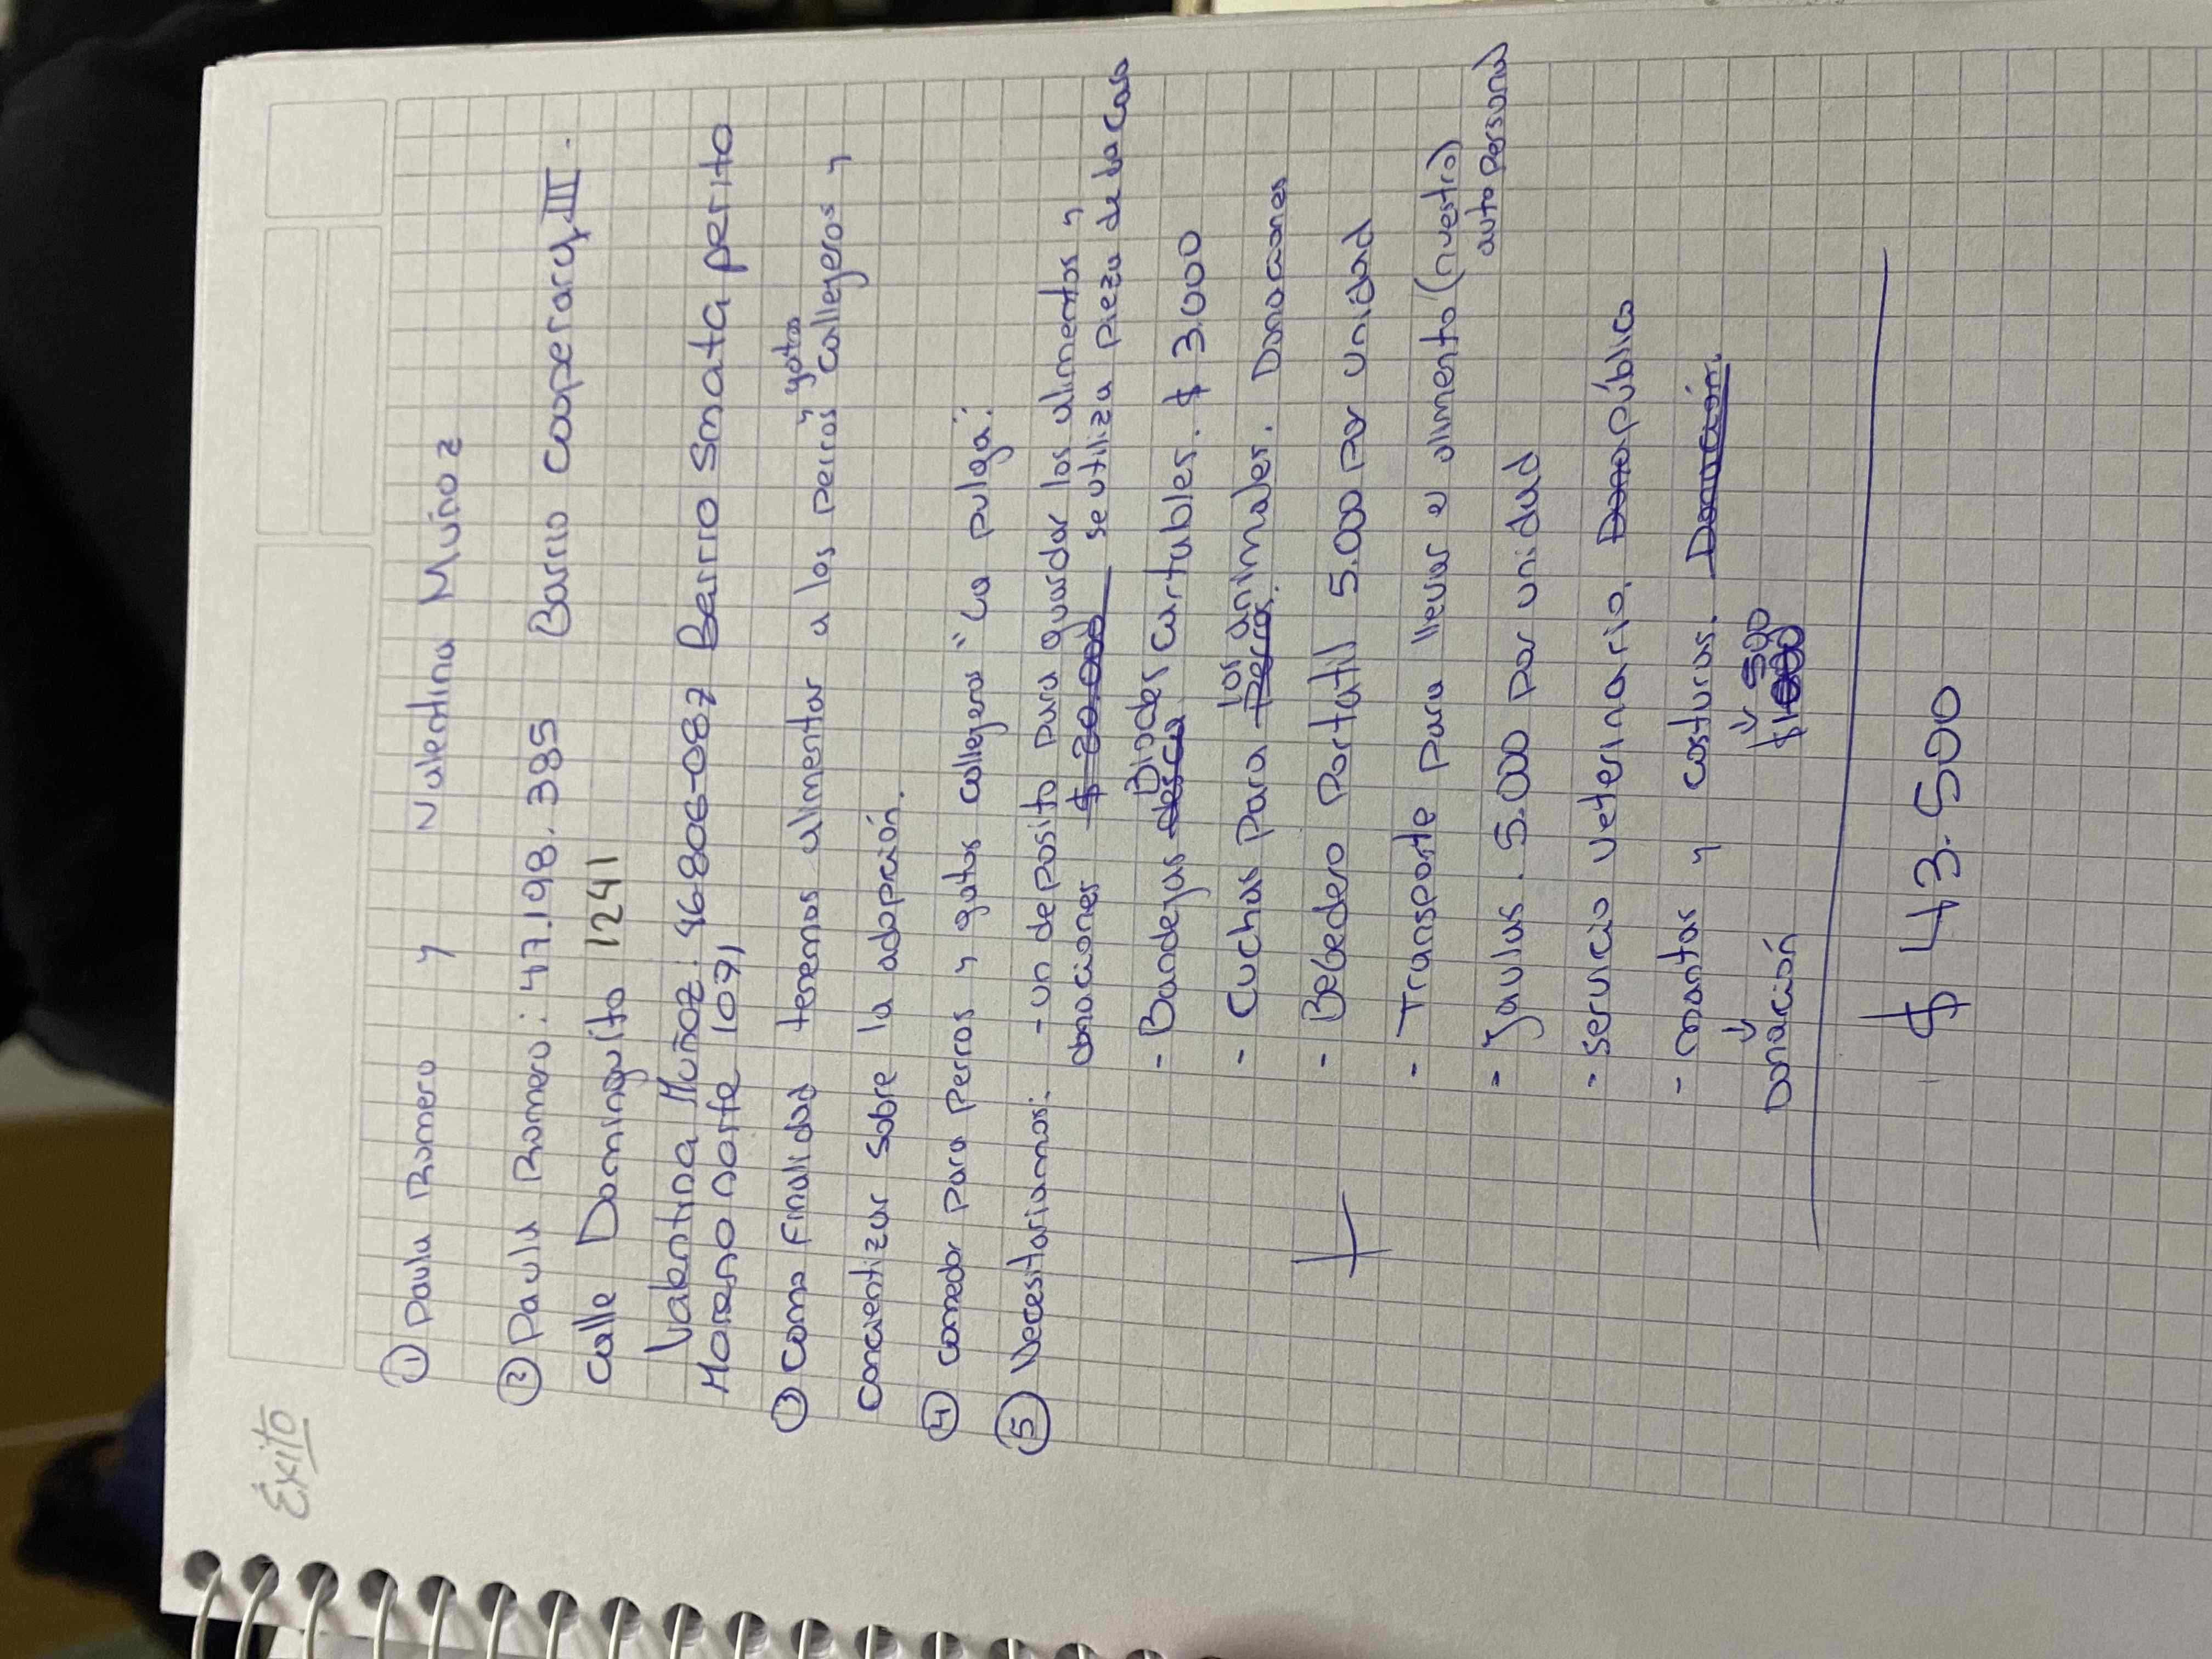 Éxito
① Paula Romero y Valentina Muñoz
② Paula Romero: 47.198.385 Barrio Cooperarq III.
Calle Dominguito 1241
Valentina Muñoz: 46806-087 Barrio Smata perito
Moreno norte 1071
③ Como finalidad tenemos alimentar a los perros y gatos callejeros y
concientizar sobre la adopción.
④ comedor para perros y gatos callejeros "La pulga".
⑤ Necesitariamos: - un deposito para guardar los alimentos y
donaciones $ 20.000 se utiliza pieza de la casa
- Bandejas desca Biodes cartables. $ 3.000
- Cuchas para perros. los animales. Donaciones
- Bebedero Portatil 5.000 por unidad
- Transporte para llevar el alimento (nuestro)
auto personal
- Jaulas. 5.000 por unidad
- servicio veterinario. Dona público
- mantas y costuras. Donación.
Donación $ 500
$ 43.500